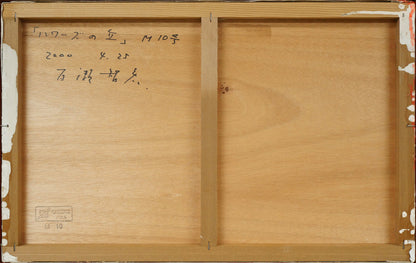 「ハワーズの丘」 M 10号
2000 4.25
百瀬智宏
10